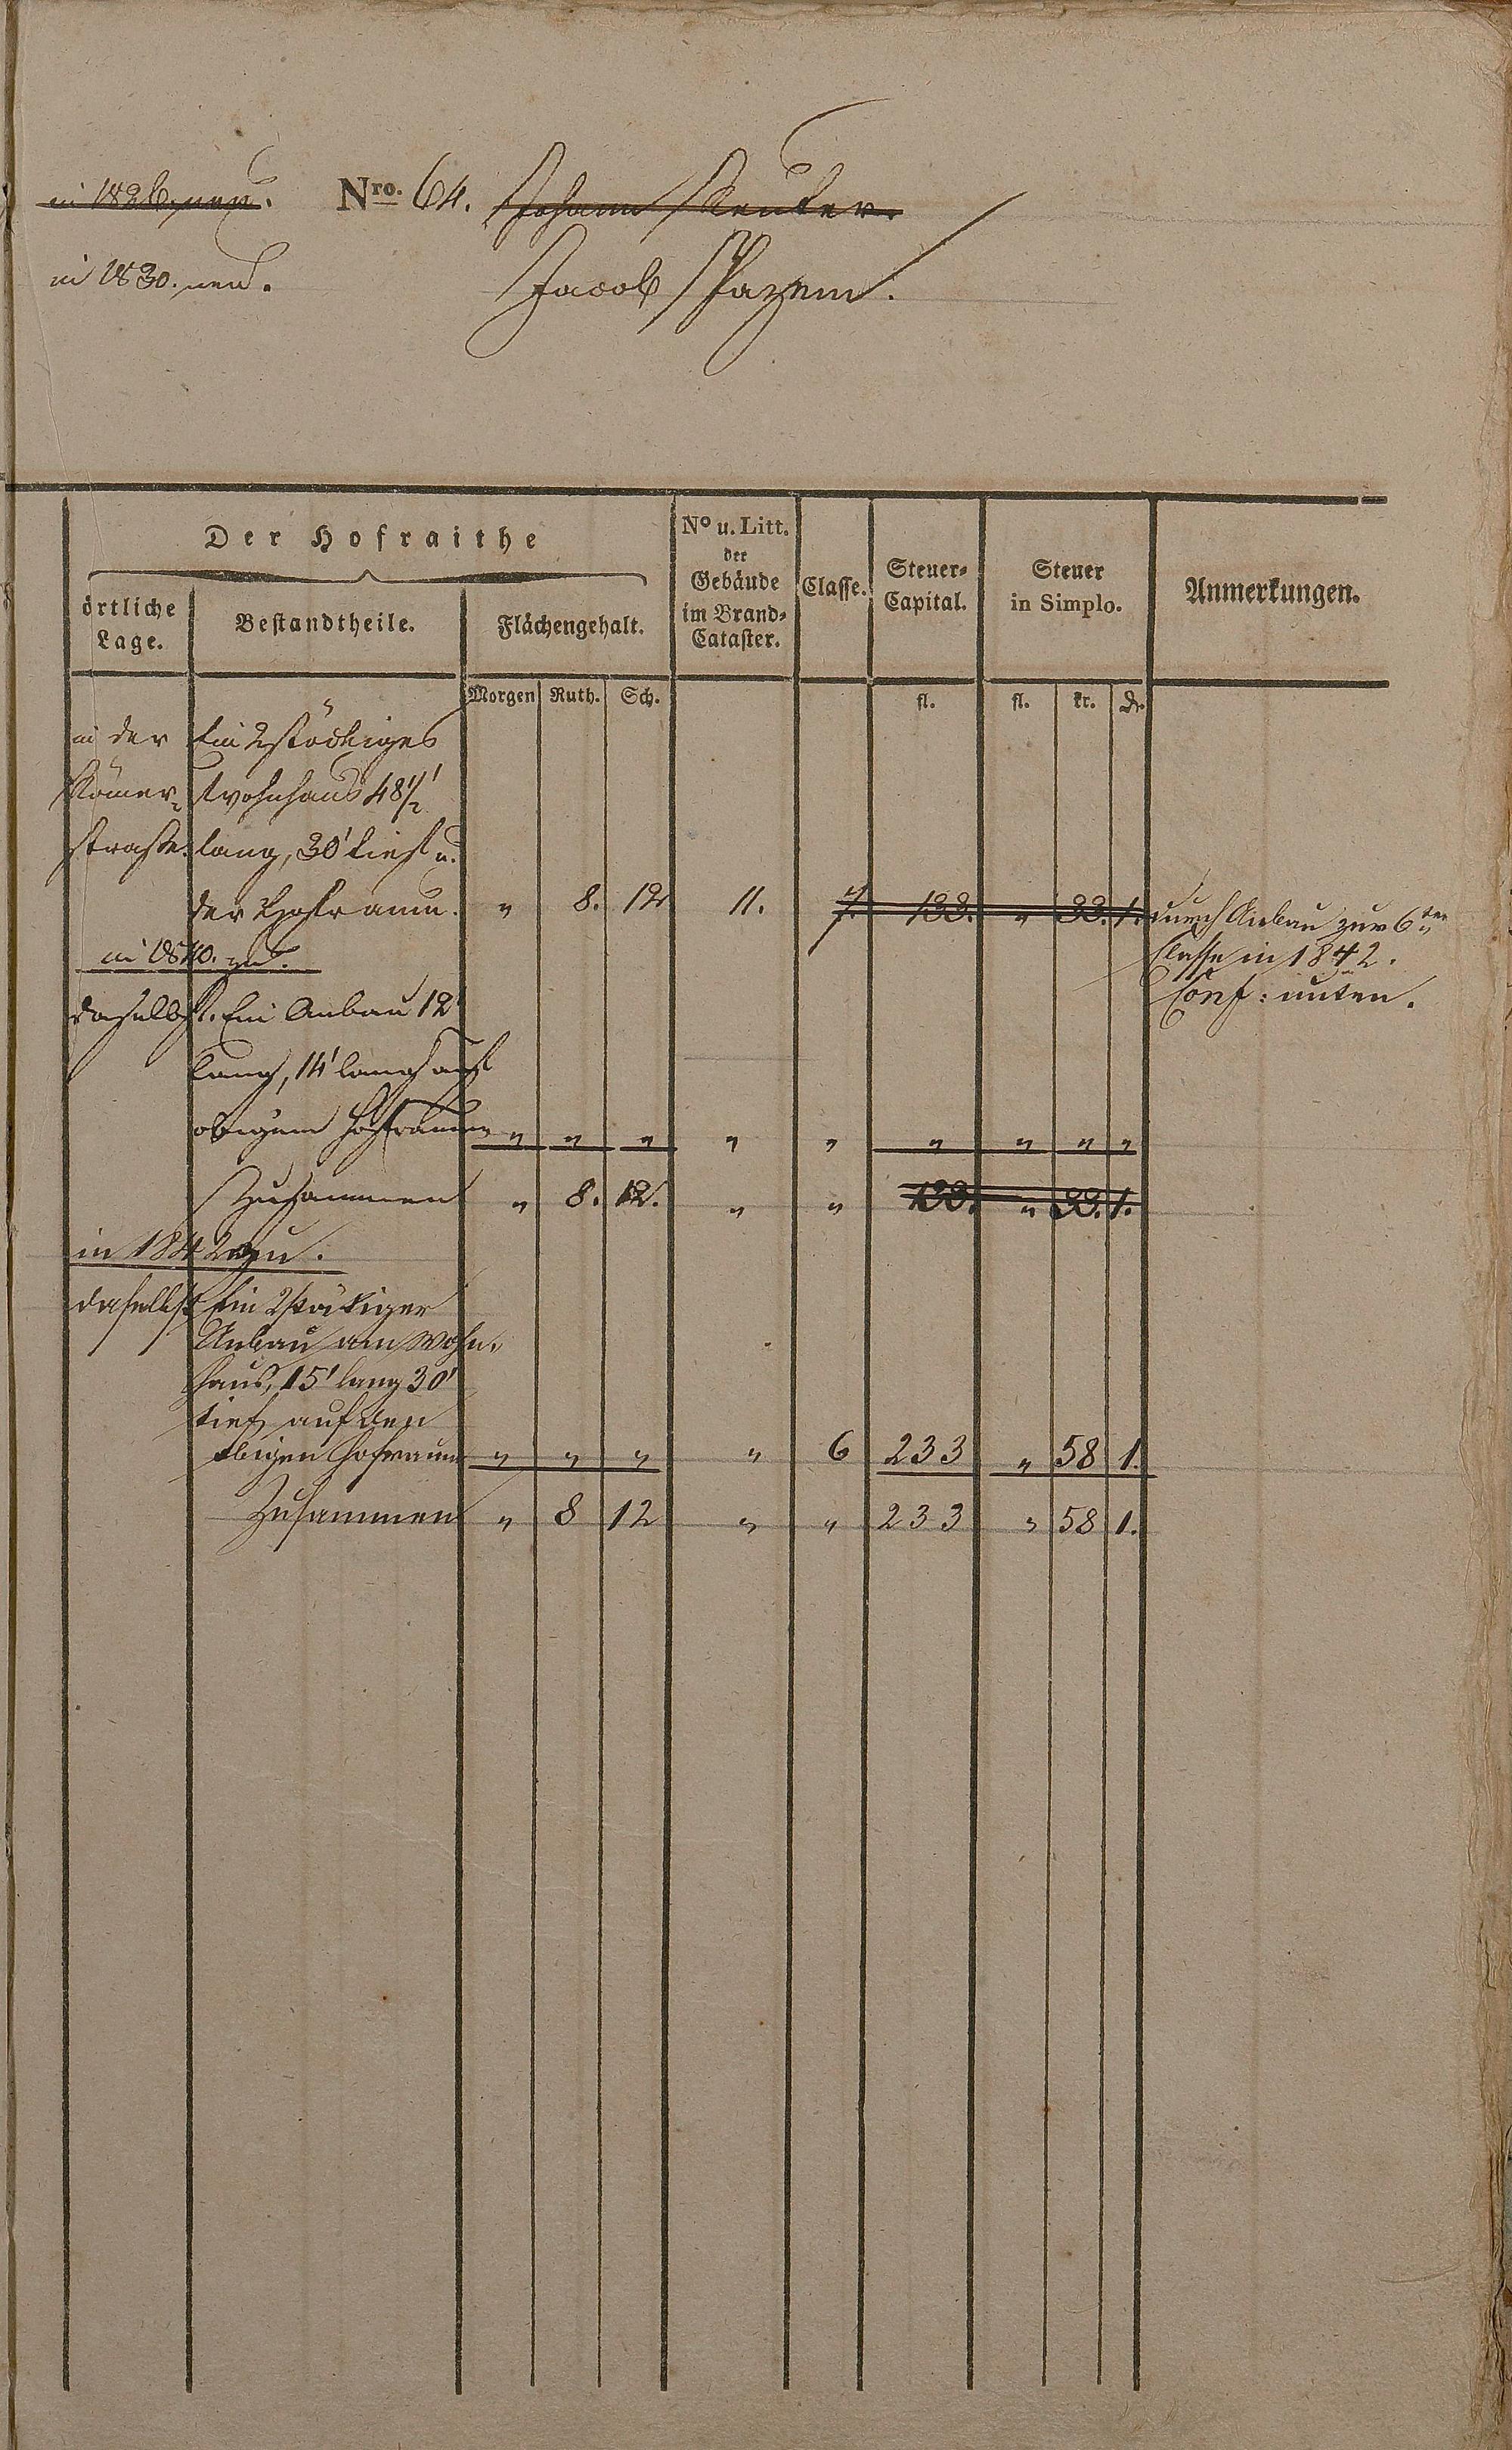 in 1826. neu. Nro. 64. Johann Reuter.
in 1830. neu. Jacob Pazem.
Der Hofraithe
örtliche Lage.
Bestandtheile.
Flächengehalt.
No u. Litt. der Gebäude im Brand-Cataster.
Classe.
Steuer-Capital.
Steuer in Simplo.
Anmerkungen.
Morgen Ruth. Sch. fl. fl. kr. dr.
in der Ein 2stöckiges
Römer- Wohnhaus 48 1/2'
straße. lang, 30' tief u.
der Hofraum. " 8. 12 11. 7. 133. " 33. 1. durch Anbau zur 6ten
Classe in 1842.
Conf: unten.
in 1840. zu.
daselbst. Ein Anbau 12'
lang, 14' lang auf
obigem Hofraum " " " " " " " " "
Zusammen " 8. 12. " " 133. " 33. 1.
in 1842 zu.
daselbst Ein 2stöckiger
Anbau am Wohn-
haus, 15' lang 30'
tief auf den
obigen Hofraum " " " " 6 233 " 58 1.
Zusammen " 8 12 " " 233 " 58 1.